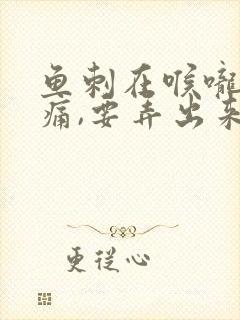 鱼刺在喉咙
痛,要弄出来
更从心